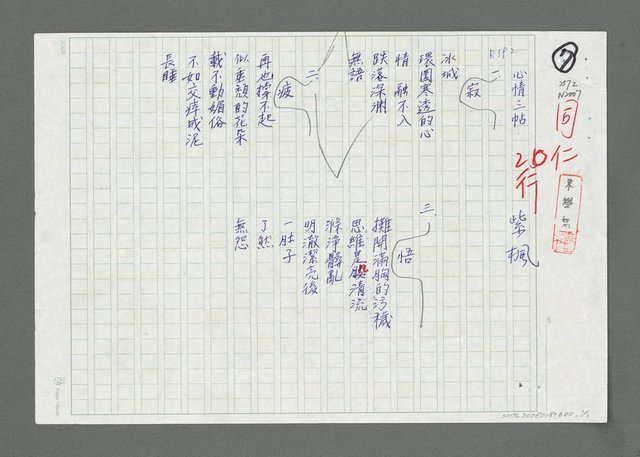 7
N2007
同仁
20行
心情三帖
紫楓
P1P2
一、寂
冰城
環圍寒透的心
情 融不入
跌落深淵
無語
二、疲
再也撐不起
似垂頹的花朵
載不動媚俗
不如交瘁成泥
長睡
三、悟
攤開滿胸的污穢
思維是股清流
滌淨髒亂
明澈潔亮後
一肚子
了然
無怨
NMTL20080181600